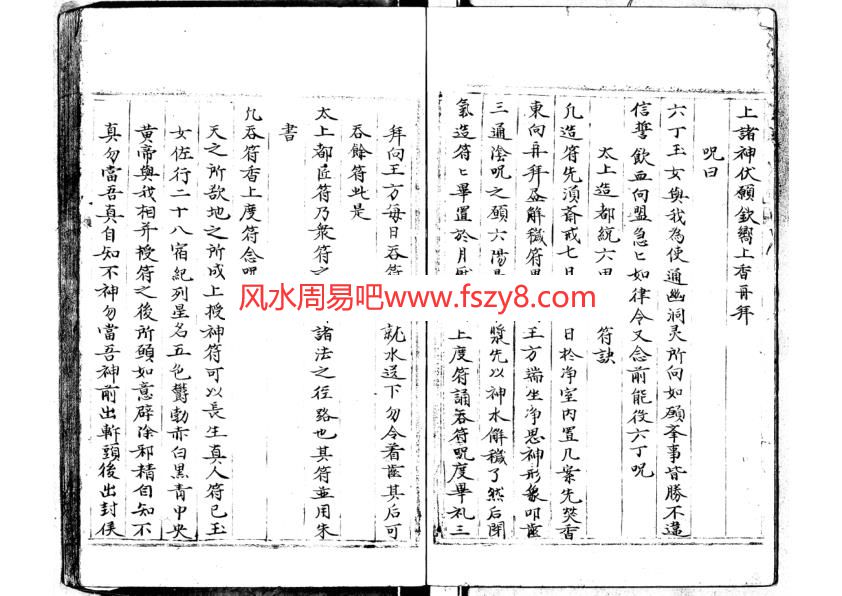 上諸神伏願欽嚮上香再拜
呪曰
六丁玉女與我為使通幽洞灵所向如願奉事皆勝不違
信誓歃血同盟急匕如律令又念前能役六丁呪
太上造都統六甲符訣
凢造符先湏斎戒七日於净室内置几案先焚香
東向再拜解穢符王方端坐净思神形象叩齒
三通隂呪之願六陽漿先以神水解穢了然后閉
氣造符匕畢置於月上度符誦吞符呪度畢礼三
拜向王方每日吞符就水送下勿令着齒其后可
吞餘符此是
太上都匠符乃衆符之諸法之徑路也其符並用朱
書
凢吞符香上度符念呪
天之所欲地之所成上授神符可以長生真人符已玉
女佐行二十八宿紀列星名五色欝勃赤白黒青中央
黄帝與我相并授符之後所願如意辟除邪精自知不
真勿當吾真自知不神勿當吾神前出斬頭後出封侯
风水周易吧www.fszy8.com